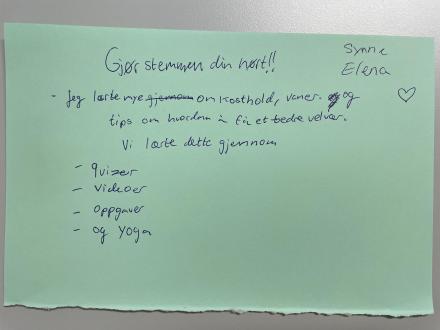 Gjør stemmen din hørt!!
Synne
Elena
- Jeg lærte mye gjennom om kosthold, vaner. og og
tips om hvordan å få et bedre velvær.
Vi lærte dette gjennom
- quizer
- videoer
- oppgaver
- og yoga